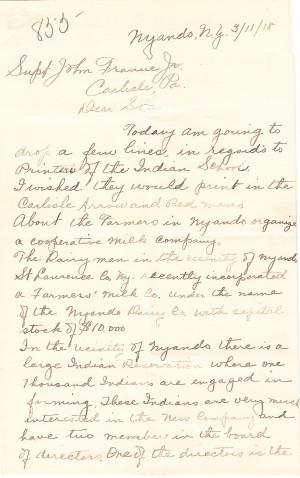 855
Nyando, N.Y. 3/11/18
Supt John Francis Jr.
Carlisle, Pa.
Dear Sir—
Today am going to
drop a few lines, in regards to
Printers of the Indian School.
I wished they would print in the
Carlisle Arrow and Red mans
About the Farmers in Nyando organize
a cooperative Milk Company.
The Dairy man in the vicinity of Nyando
St Lawrence Co Ny. recently incorporated
a Farmers' Milk Co. under the name
of the Nyando Dairy Co with capital
stock of $10,000
In the vicinity of Nyando there is a
large Indian Reservation where one
Thousand Indians are engaged in
farming. These Indians are very much
interested in the New Company and
have two member in the board
of directors. One of the directors is the